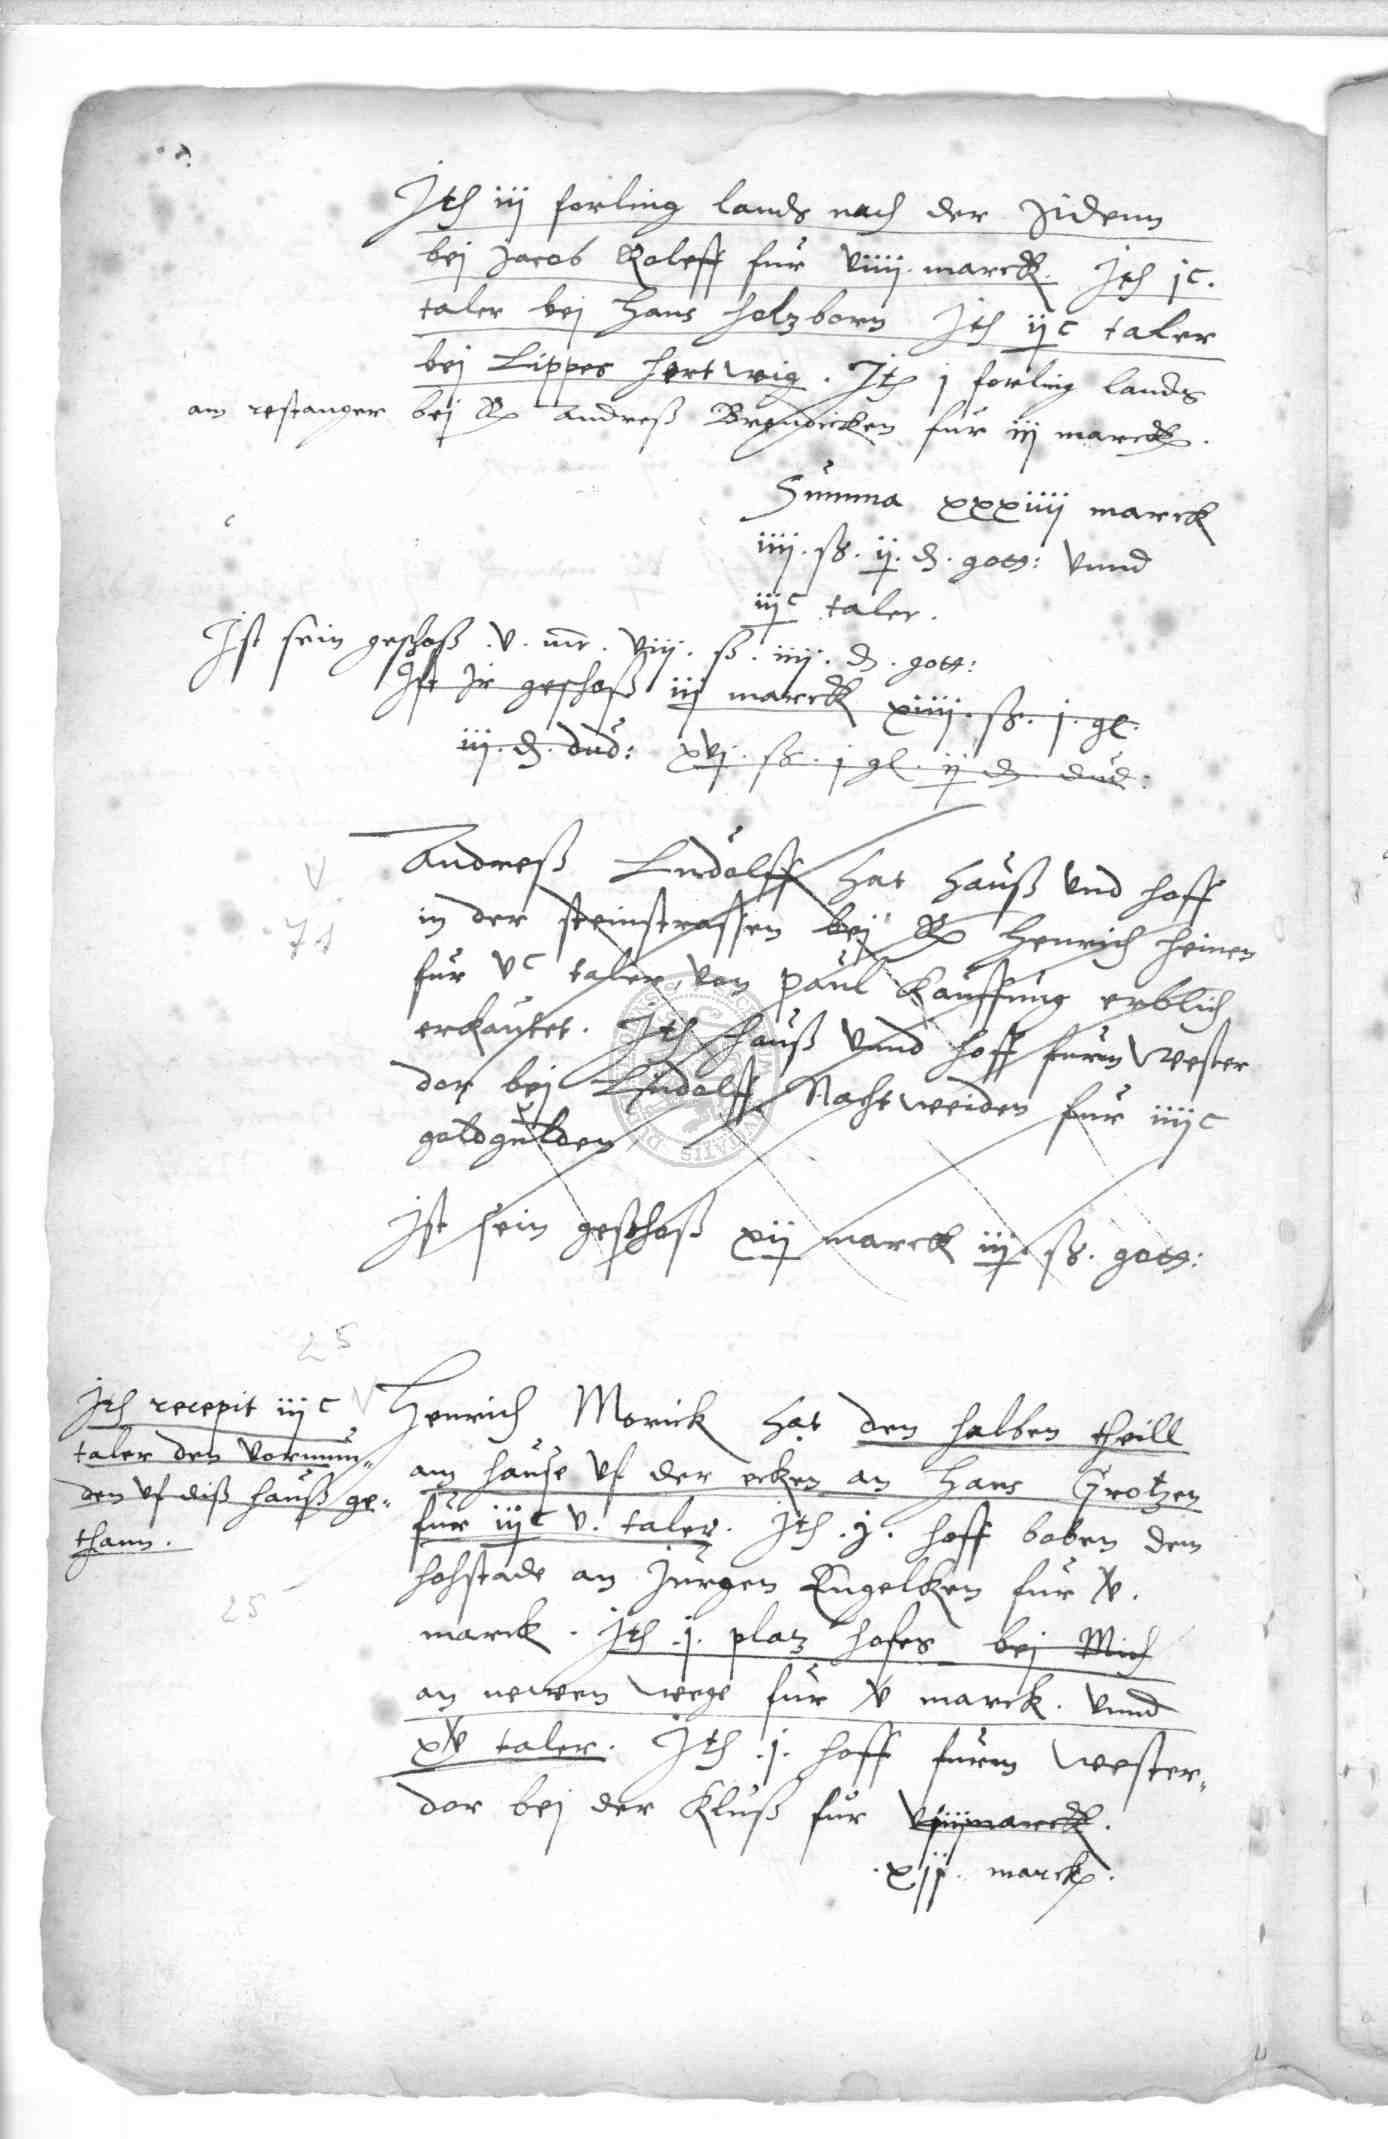 Jth iij forling lands nach der Jidenn
bei Jacob Roleff fur viiij marck. Jth jc.
taler bei Hans holzborn Jth ijc taler
bei Lippes hertwig. Jth j forling lands
am restanger bei Andreß Brendicken fur iij marck.
Summa xxxiiij marck
iiij. ß. ij. d. gott: vnnd
iijc taler.
Jst sein geschoß .v. mr. viij. ß. iiij. d. gott:
Jst Jr geschoß iij marck xiiij. ß. j. gl.
iij. d. dud: xvj. ß. j gl. ij d dud:
Andreß Ludolff hat hauß vnd hoff
in der steinstrassen bei Henrich heinen
fur vc taler, von Paul Kauffung erblich
erkaufet. Jth hauß vnnd hoff furm Wester
dor bei Ludolff Nachtweiden fur iiijc
goldgulden
Jst sein geschoß xij marck iij. ß. gott:
25
Jth recepit iijc
taler den vormun-
den vf diß hauß ge-
thann.
25
Henrich Morick hat den halben theill
am hause vf der ecken an Hans Grotzen
fur iijc v. taler. Jth .j. hoff boben dem
hohstade an Jurgen Engelken fur v.
marck. Jth .j. platz hofes bei Mich
an newen wege fur v marck. vnnd
xv taler. Jth .j. hoff furm Wester-
dor bei der Kluß fur viij marck.
.xij. marck.